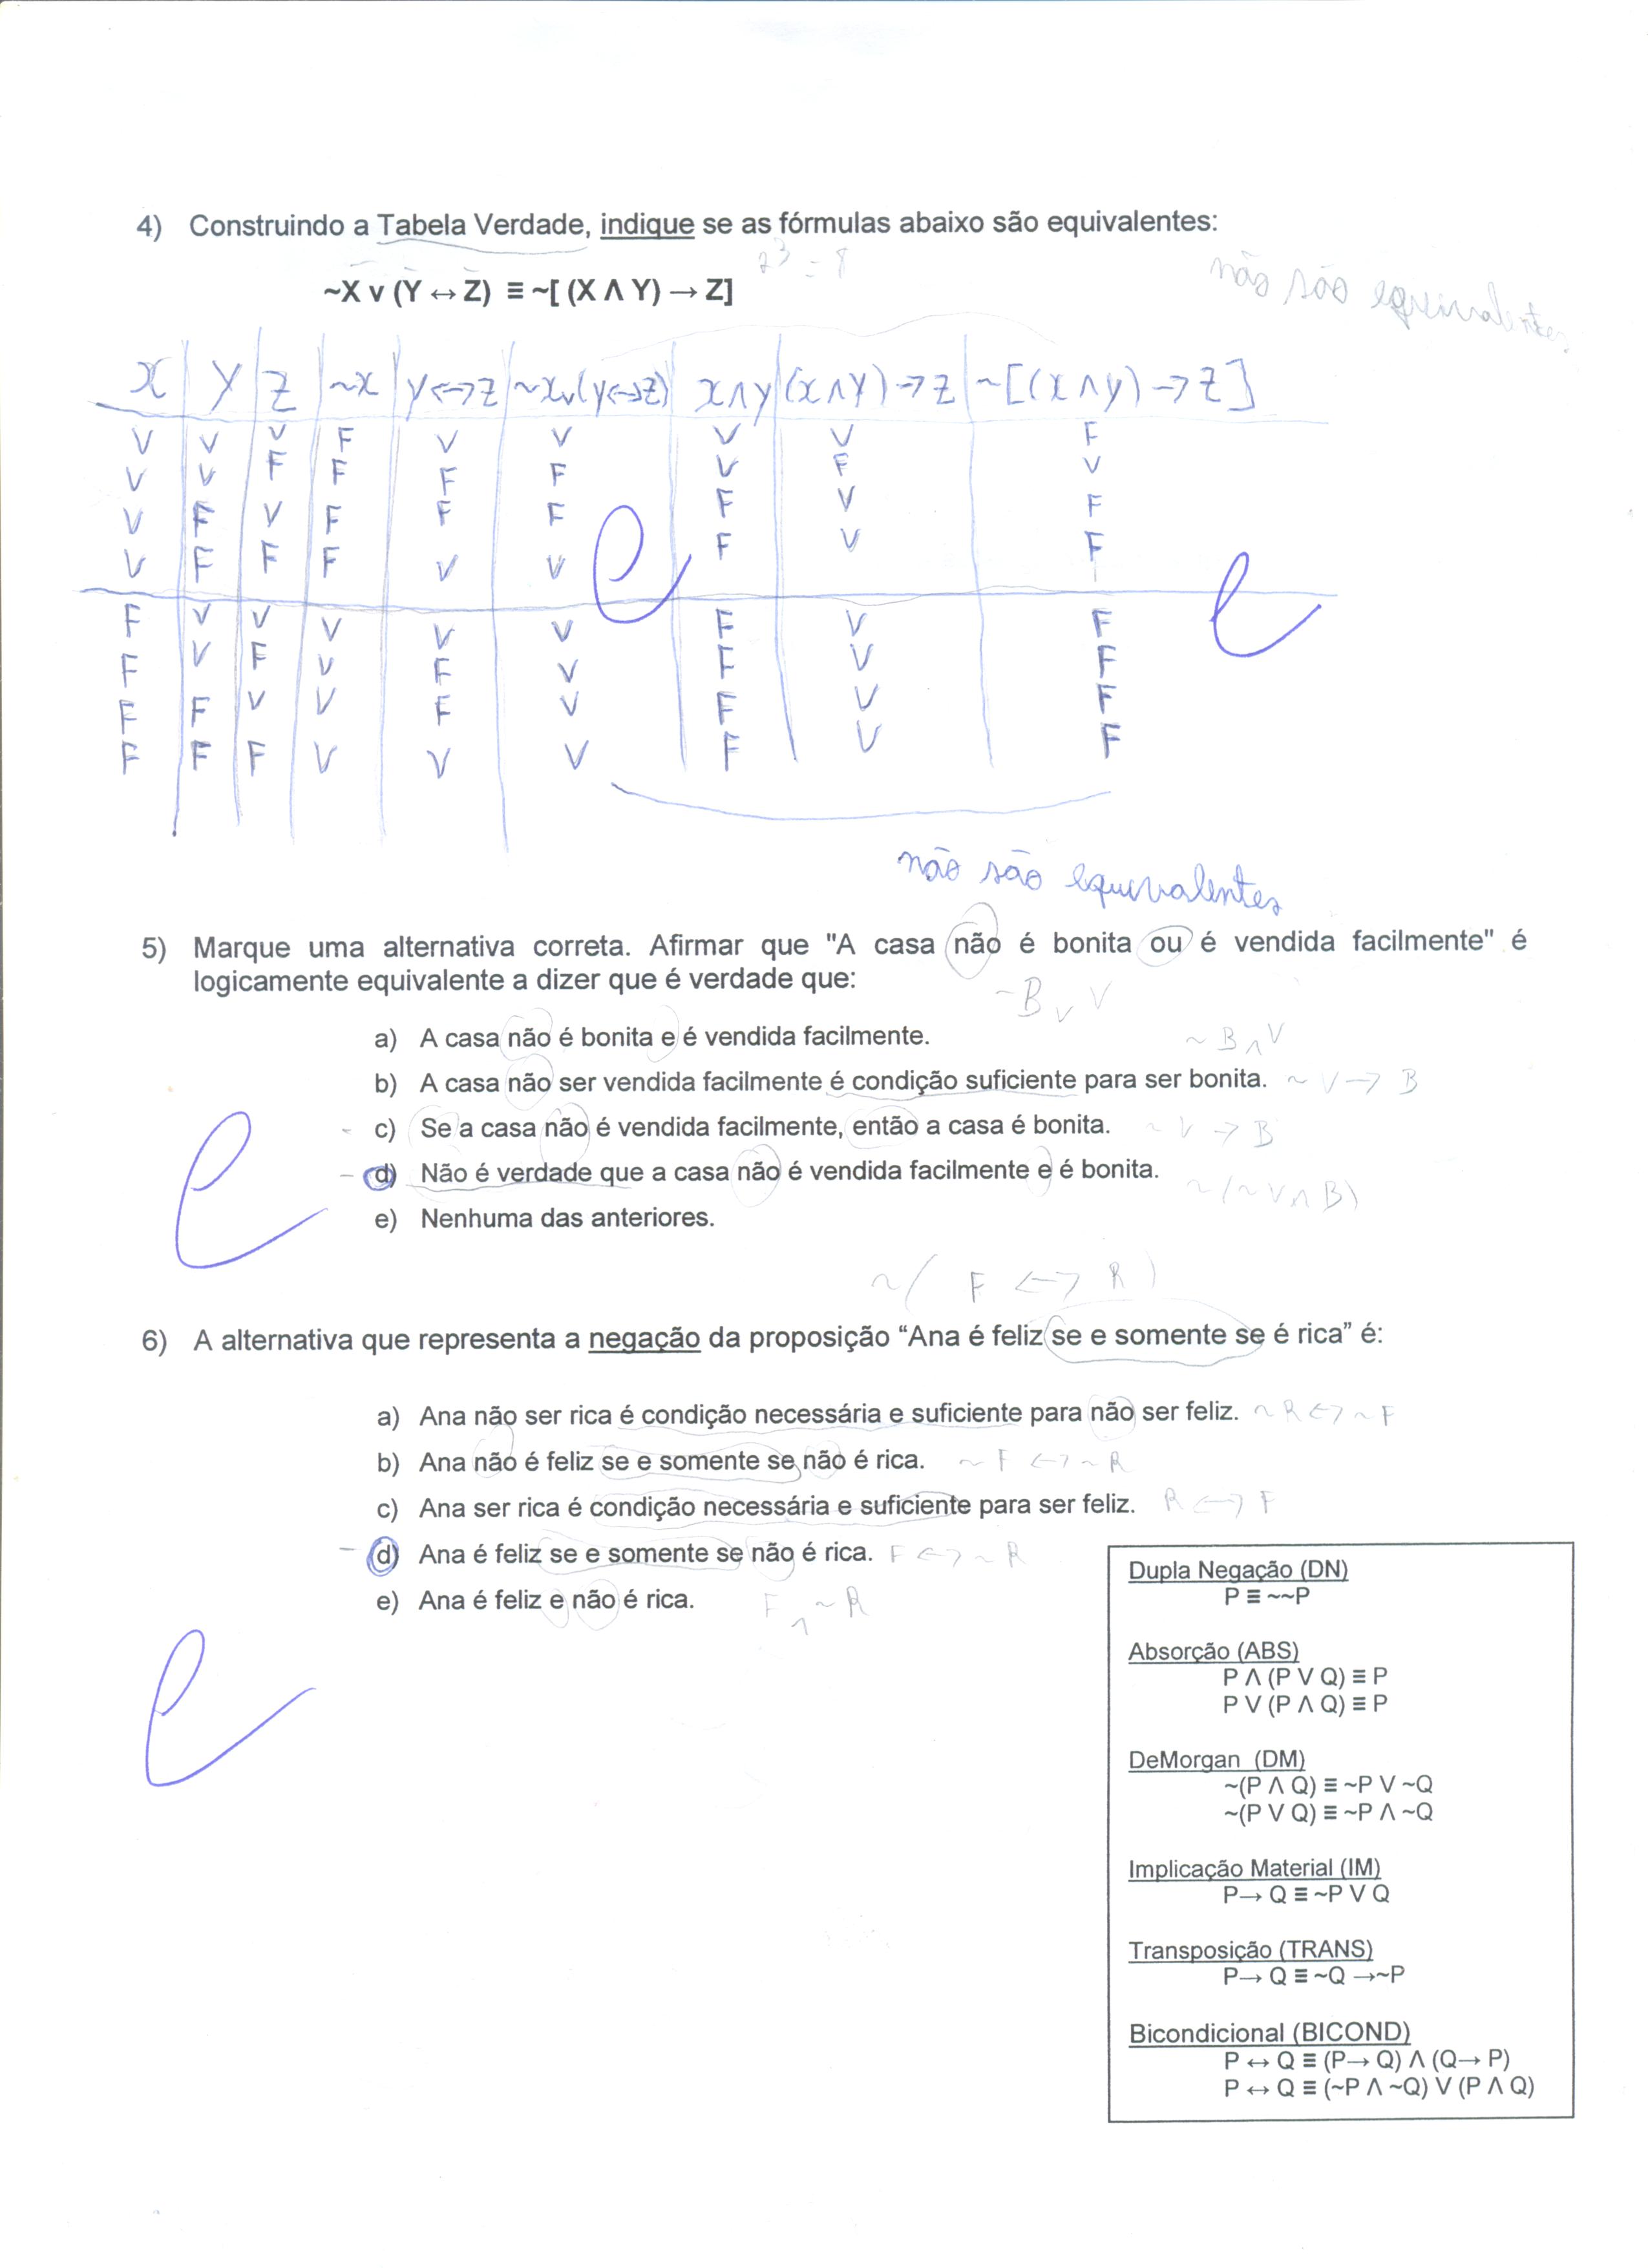 4) Construindo a Tabela Verdade, indique se as fórmulas abaixo são equivalentes:
2³ = 8
não são equivalentes
~X v (Y ↔ Z) ≡ ~[ (X Λ Y) → Z]
X Y Z ~X Y<->Z ~X v (Y<->Z) X Λ Y (X Λ Y) -> Z ~[(X Λ Y) -> Z]
V V V F V V V V F
V V F F F F V F V
V F V F F F F V F
V F F F V V F V F
F V V V V V F V F
F V F V F V F V F
F F V V F V F V F
F F F V V V F V F
não são equivalentes
5) Marque uma alternativa correta. Afirmar que "A casa não é bonita ou é vendida facilmente" é
logicamente equivalente a dizer que é verdade que:
~B v V
a) A casa não é bonita e é vendida facilmente. ~B Λ V
b) A casa não ser vendida facilmente é condição suficiente para ser bonita. ~V -> B
c) Se a casa não é vendida facilmente, então a casa é bonita. ~V -> B
d) Não é verdade que a casa não é vendida facilmente e é bonita. ~(~V Λ B)
e) Nenhuma das anteriores.
~( F <-> R )
6) A alternativa que representa a negação da proposição “Ana é feliz se e somente se é rica” é:
a) Ana não ser rica é condição necessária e suficiente para não ser feliz. ~R <-> ~F
b) Ana não é feliz se e somente se não é rica. ~F <-> ~R
c) Ana ser rica é condição necessária e suficiente para ser feliz. R <-> F
d) Ana é feliz se e somente se não é rica. F <-> ~R
e) Ana é feliz e não é rica. F Λ ~R
Dupla Negação (DN)
P ≡ ~~P
Absorção (ABS)
P Λ (P V Q) ≡ P
P V (P Λ Q) ≡ P
DeMorgan (DM)
~(P Λ Q) ≡ ~P V ~Q
~(P V Q) ≡ ~P Λ ~Q
Implicação Material (IM)
P→ Q ≡ ~P V Q
Transposição (TRANS)
P→ Q ≡ ~Q →~P
Bicondicional (BICOND)
P ↔ Q ≡ (P→ Q) Λ (Q→ P)
P ↔ Q ≡ (~P Λ ~Q) V (P Λ Q)